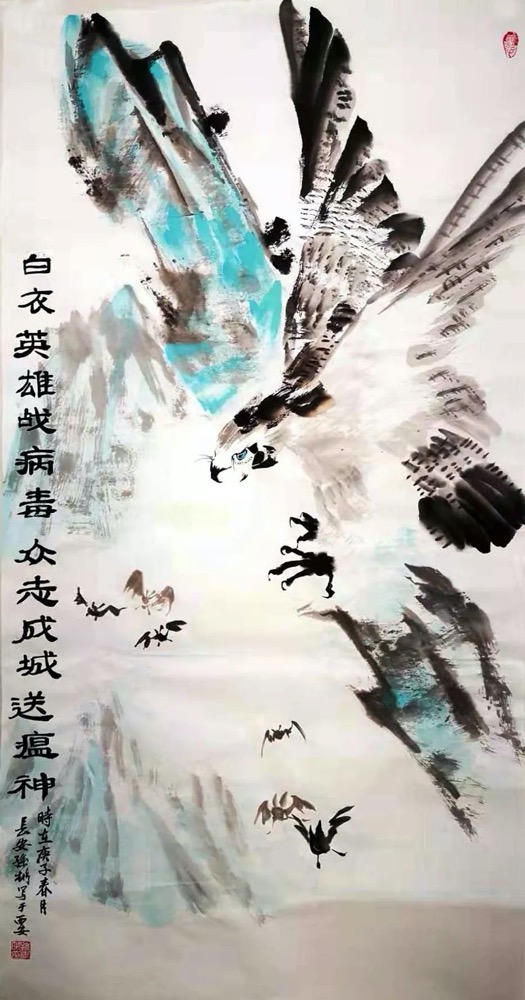 白衣英雄战病毒 众志成城送瘟神
時在庚子春月
長安孫彬写于西安